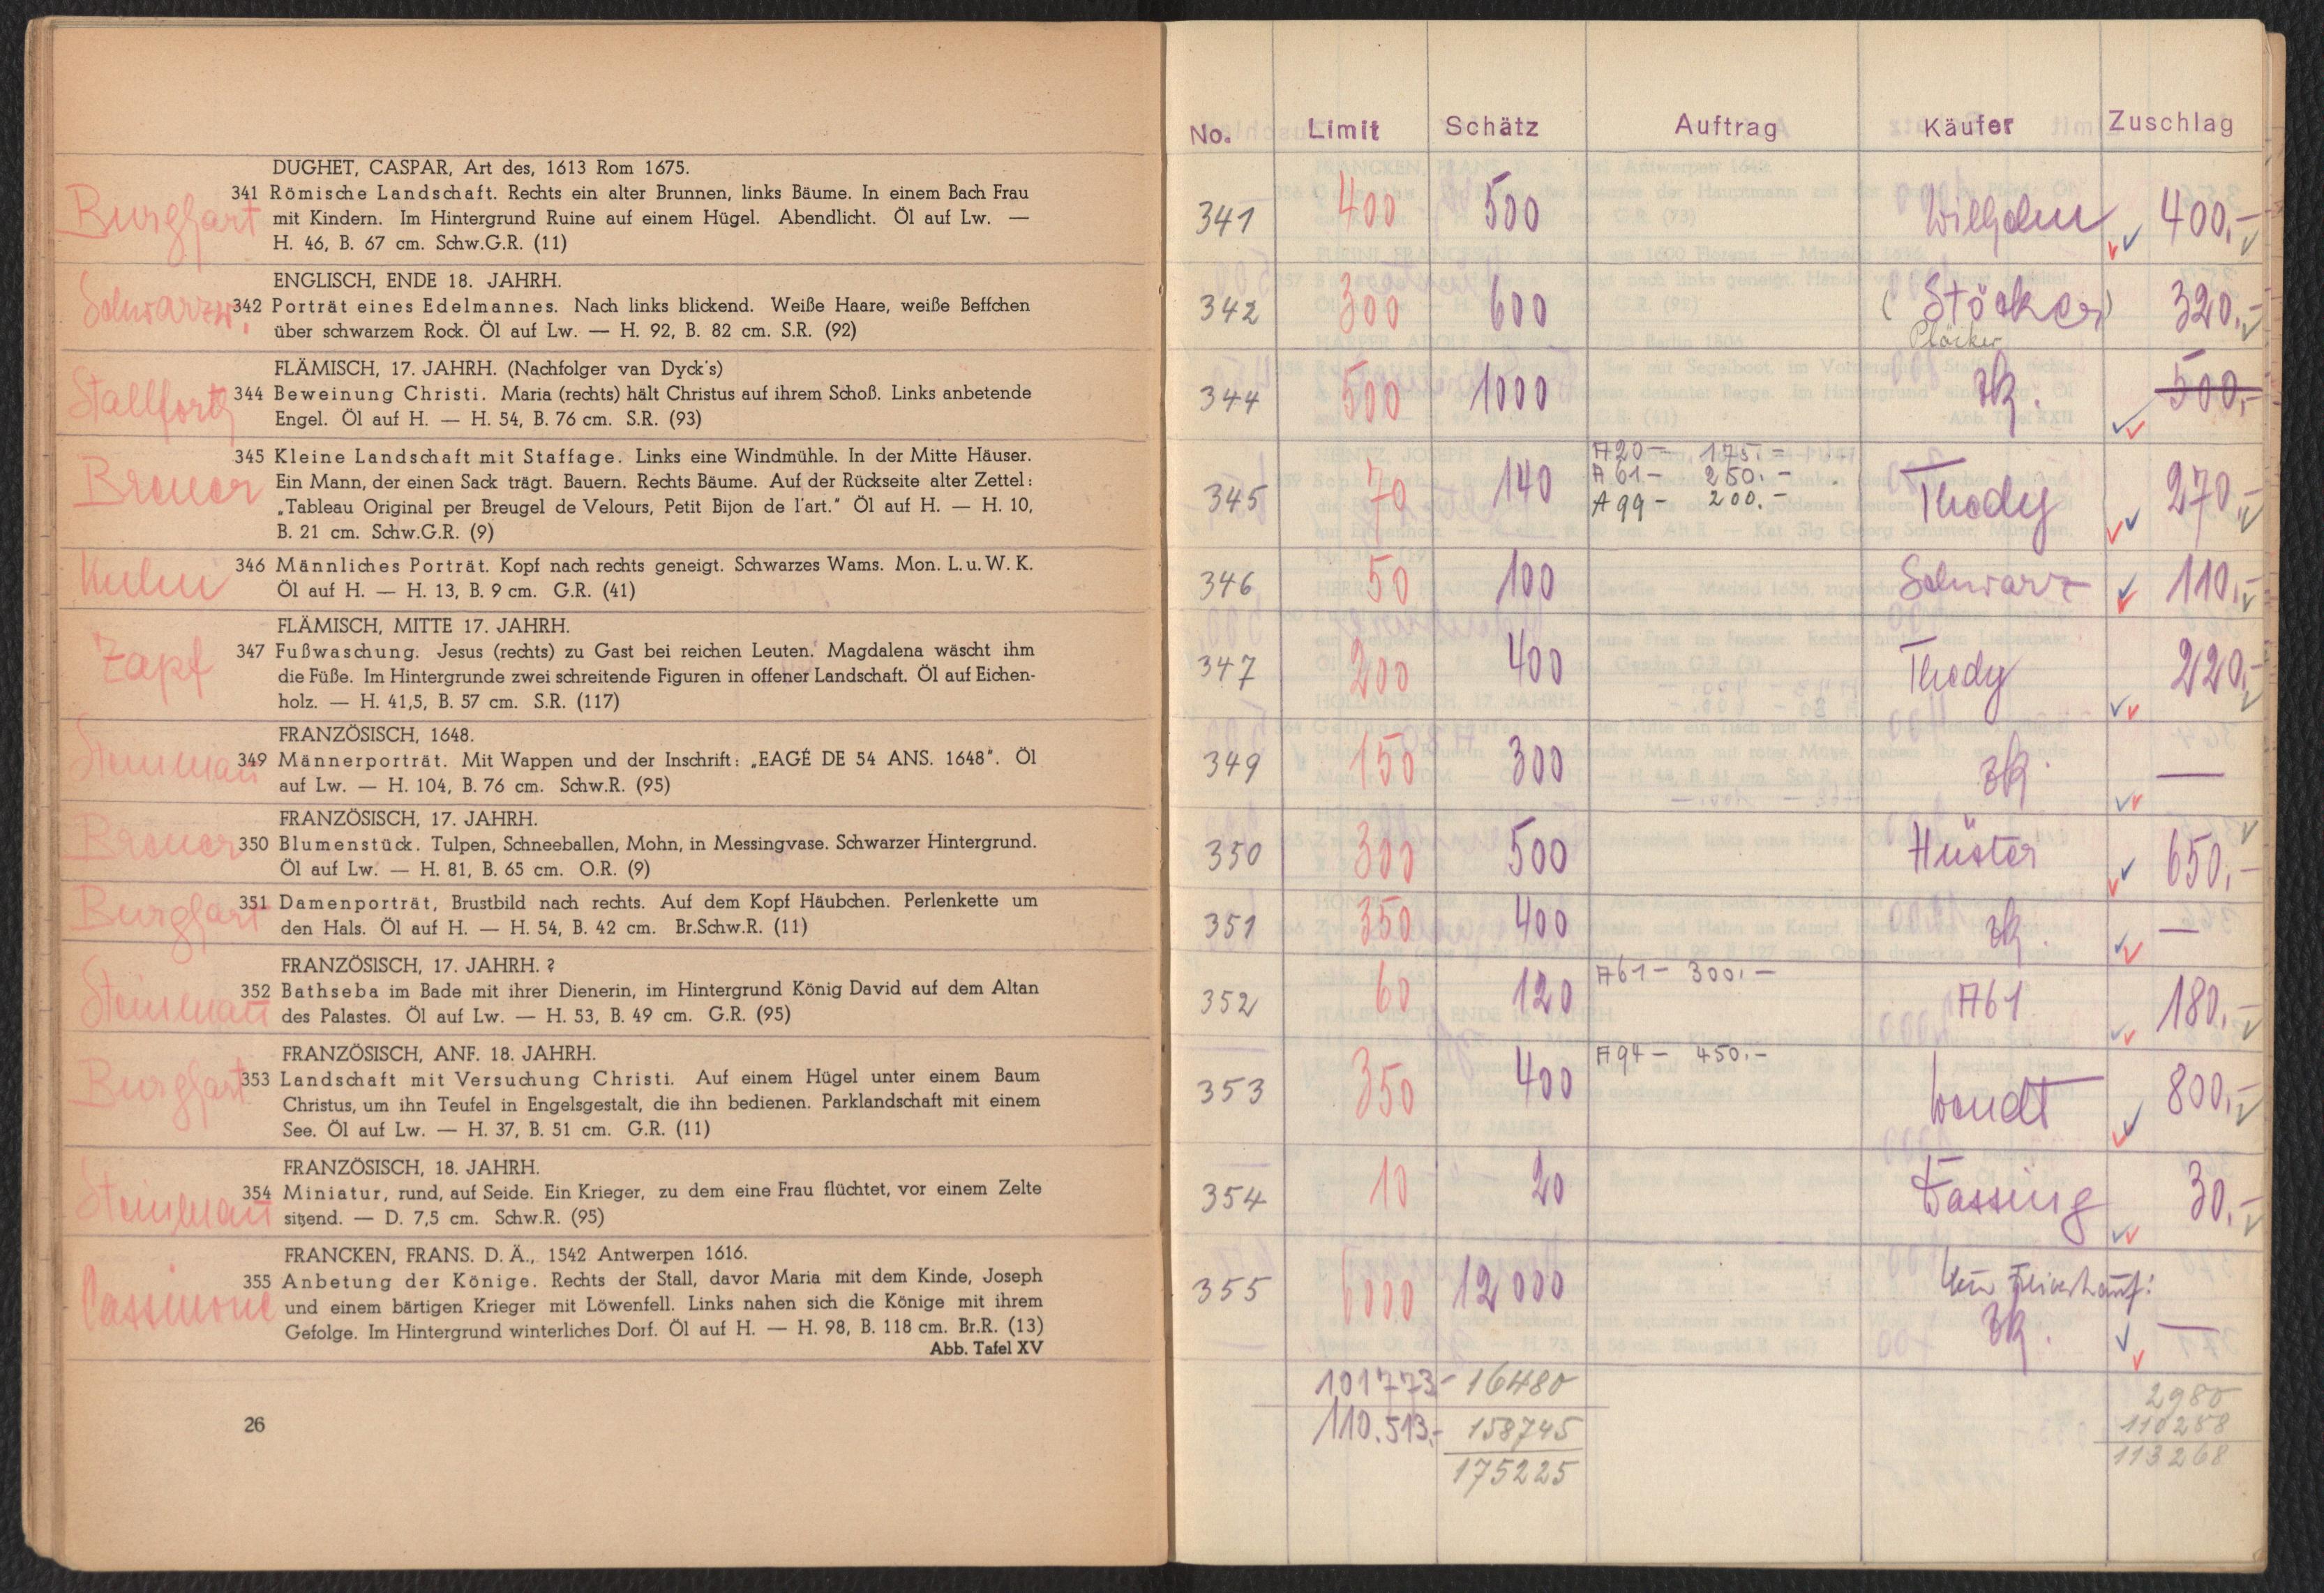 DUGHET, CASPAR, Art des, 1613 Rom 1675.
Burghart
341 Römische Landschaft. Rechts ein alter Brunnen, links Bäume. In einem Bach Frau
mit Kindern. Im Hintergrund Ruine auf einem Hügel. Abendlicht. Öl auf Lw. —
H. 46, B. 67 cm. Schw.G.R. (11)
ENGLISCH, ENDE 18. JAHRH.
Schwarzw.
342 Porträt eines Edelmannes. Nach links blickend. Weiße Haare, weiße Beffchen
über schwarzem Rock. Öl auf Lw. — H. 92, B. 82 cm. S.R. (92)
FLÄMISCH, 17. JAHRH. (Nachfolger van Dyck's)
Stallforth
344 Beweinung Christi. Maria (rechts) hält Christus auf ihrem Schoß. Links anbetende
Engel. Öl auf H. — H. 54, B. 76 cm. S.R. (93)
345 Kleine Landschaft mit Staffage. Links eine Windmühle. In der Mitte Häuser.
Breuer
Ein Mann, der einen Sack trägt. Bauern. Rechts Bäume. Auf der Rückseite alter Zettel:
„Tableau Original per Breugel de Velours, Petit Bijon de l'art." Öl auf H. — H. 10,
B. 21 cm. Schw.G.R. (9)
346 Männliches Porträt. Kopf nach rechts geneigt. Schwarzes Wams. Mon. L. u. W. K.
Öl auf H. — H. 13, B. 9 cm. G.R. (41)
FLÄMISCH, MITTE 17. JAHRH.
Zapf
347 Fußwaschung. Jesus (rechts) zu Gast bei reichen Leuten. Magdalena wäscht ihm
die Füße. Im Hintergrunde zwei schreitende Figuren in offener Landschaft. Öl auf Eichen-
holz. — H. 41,5, B. 57 cm. S.R. (117)
FRANZÖSISCH, 1648.
Steinman
349 Männerporträt. Mit Wappen und der Inschrift: „EAGÉ DE 54 ANS. 1648". Öl
auf Lw. — H. 104, B. 76 cm. Schw.R. (95)
FRANZÖSISCH, 17. JAHRH.
Breuer
350 Blumenstück. Tulpen, Schneeballen, Mohn, in Messingvase. Schwarzer Hintergrund.
Öl auf Lw. — H. 81, B. 65 cm. O.R. (9)
Burghart
351 Damenporträt, Brustbild nach rechts. Auf dem Kopf Häubchen. Perlenkette um
den Hals. Öl auf H. — H. 54, B. 42 cm. Br.Schw.R. (11)
FRANZÖSISCH, 17. JAHRH. ?
Steinman
352 Bathseba im Bade mit ihrer Dienerin, im Hintergrund König David auf dem Altan
des Palastes. Öl auf Lw. — H. 53, B. 49 cm. G.R. (95)
FRANZÖSISCH, ANF. 18. JAHRH.
Burghart
353 Landschaft mit Versuchung Christi. Auf einem Hügel unter einem Baum
Christus, um ihn Teufel in Engelsgestalt, die ihn bedienen. Parklandschaft mit einem
See. Öl auf Lw. — H. 37, B. 51 cm. G.R. (11)
FRANZÖSISCH, 18. JAHRH.
Steinman
354 Miniatur, rund, auf Seide. Ein Krieger, zu dem eine Frau flüchtet, vor einem Zelte
sitzend. — D. 7,5 cm. Schw.R. (95)
FRANCKEN, FRANS. D. Ä., 1542 Antwerpen 1616.
Cassirone
355 Anbetung der Könige. Rechts der Stall, davor Maria mit dem Kinde, Joseph
und einem bärtigen Krieger mit Löwenfell. Links nahen sich die Könige mit ihrem
Gefolge. Im Hintergrund winterliches Dorf. Öl auf H. — H. 98, B. 118 cm. Br.R. (13)
Abb. Tafel XV
26
No. Limit Schätz Auftrag Käufer Zuschlag
341 400 500 Wilhelm 400,-
342 300 600 (Stöcker) 320,-
Plöcker
344 500 1000 zk. 500,-
A20 – 175.–
A61 – 250.–
345 70 140 A99 – 200.– Thody 270,-
346 50 100 Schwarz 110,-
347 200 400 Thody 220,-
349 150 300 zk. —
350 300 500 Hüster 650,-
351 350 400 zk. —
A61 – 300.–
352 60 120 A61 180,-
A94 – 450.–
353 350 400 Wendt 800,-
354 10 20 Fassing 30,-
355 6000 12000
zk. —
101773- 16480 2980
110.513.- 158745 110288
175225 113268